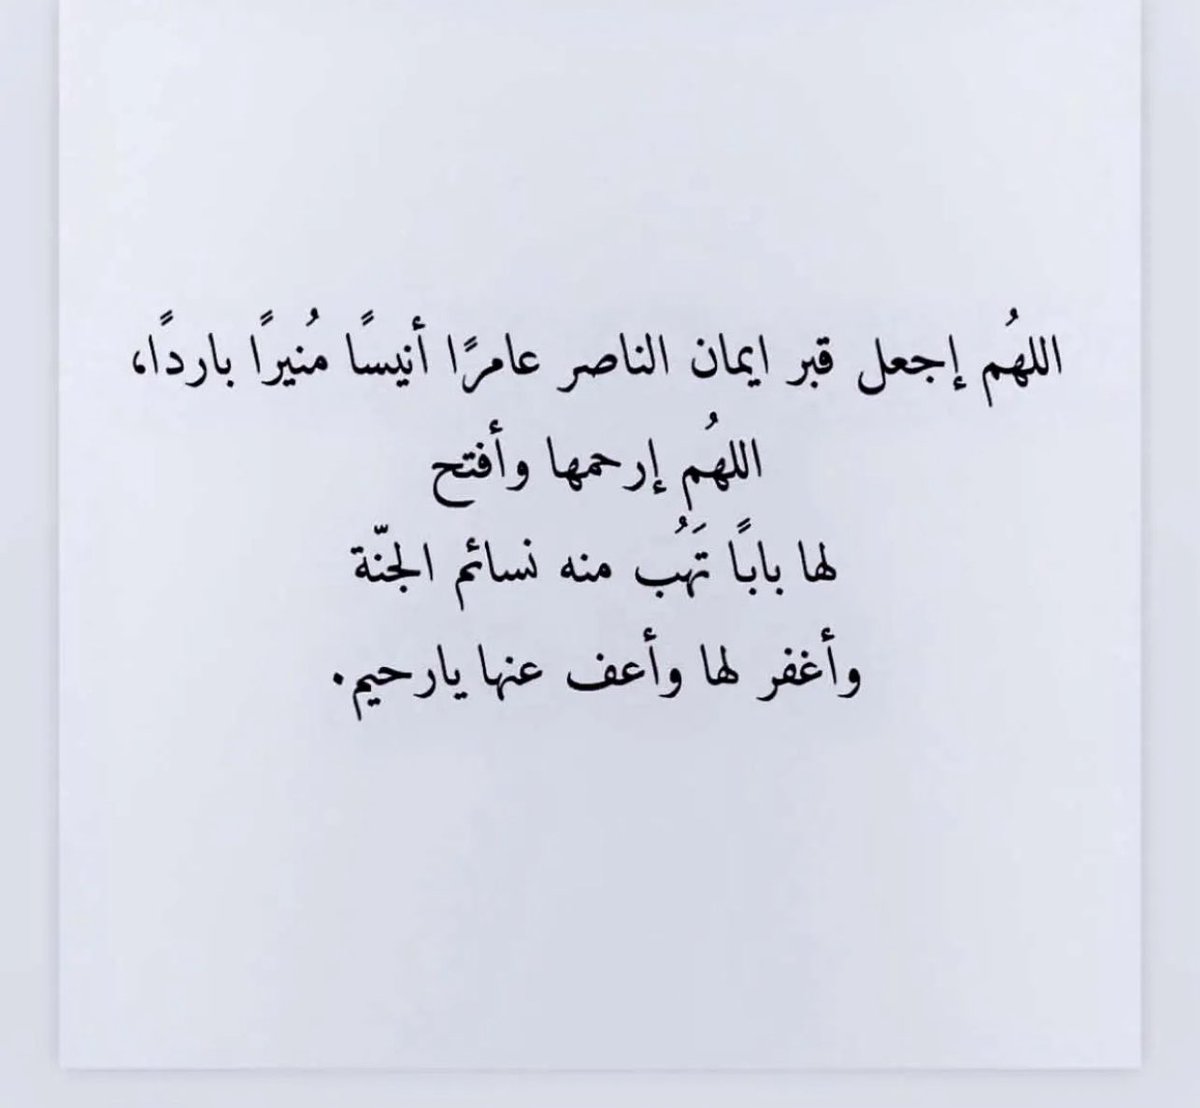 اللهُم إجعل قبر ايمان الناصر عامرًا أنيسًا مُنيرًا باردًا،
اللهُم إرحمها وأفتح
لها بابًا تَهُب منه نسائم الجنّة
وأغفر لها وأعف عنها يارحيم.